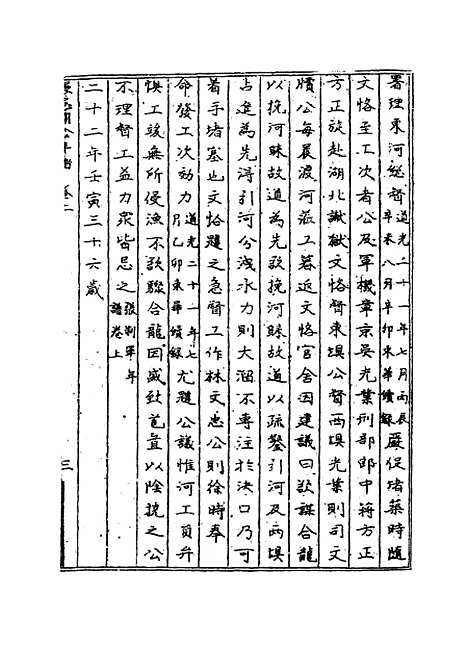 署理東河總督道光二十一年七月丙辰辛未八月辛卯東華續錄嚴促堵築時隨
文恪至工次者公及軍機章京吳光業刑部郎中蔣方正
方正旋赴湖北讞獄文恪督東壩公督西壩光業則司文
牘公每晨渡河派工暮返文恪官舍因建議曰欲謀合龍
以挽河歸故道為先欲挽河歸故道以疏鑿引河及兩壩
占進為先得引河分洩水力則大溜不專注於決口乃可
着手堵塞也文恪韙之急督工作林文忠公則徐時奉
命發工次効力道光二十一年七月乙卯東華續錄尤韙公議惟河工員弁
悞工誤無所侵漁不欲驟合龍因盛致苞苴以陰撓之公
不理督工益力眾皆忌之張制軍年譜卷上
二十二年壬寅三十六歲
公年譜 卷一
三